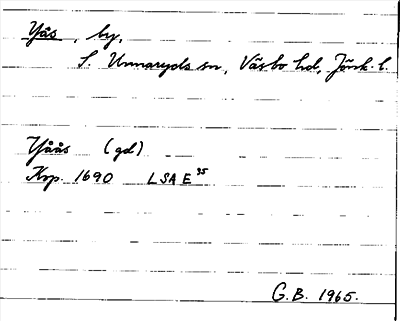 Yås, by,
S. Unnaryds sn, Väsbo hd, Jönk. l.
Yåås (gd)
Krp. 1690 LSA E 95
G.B. 1965.